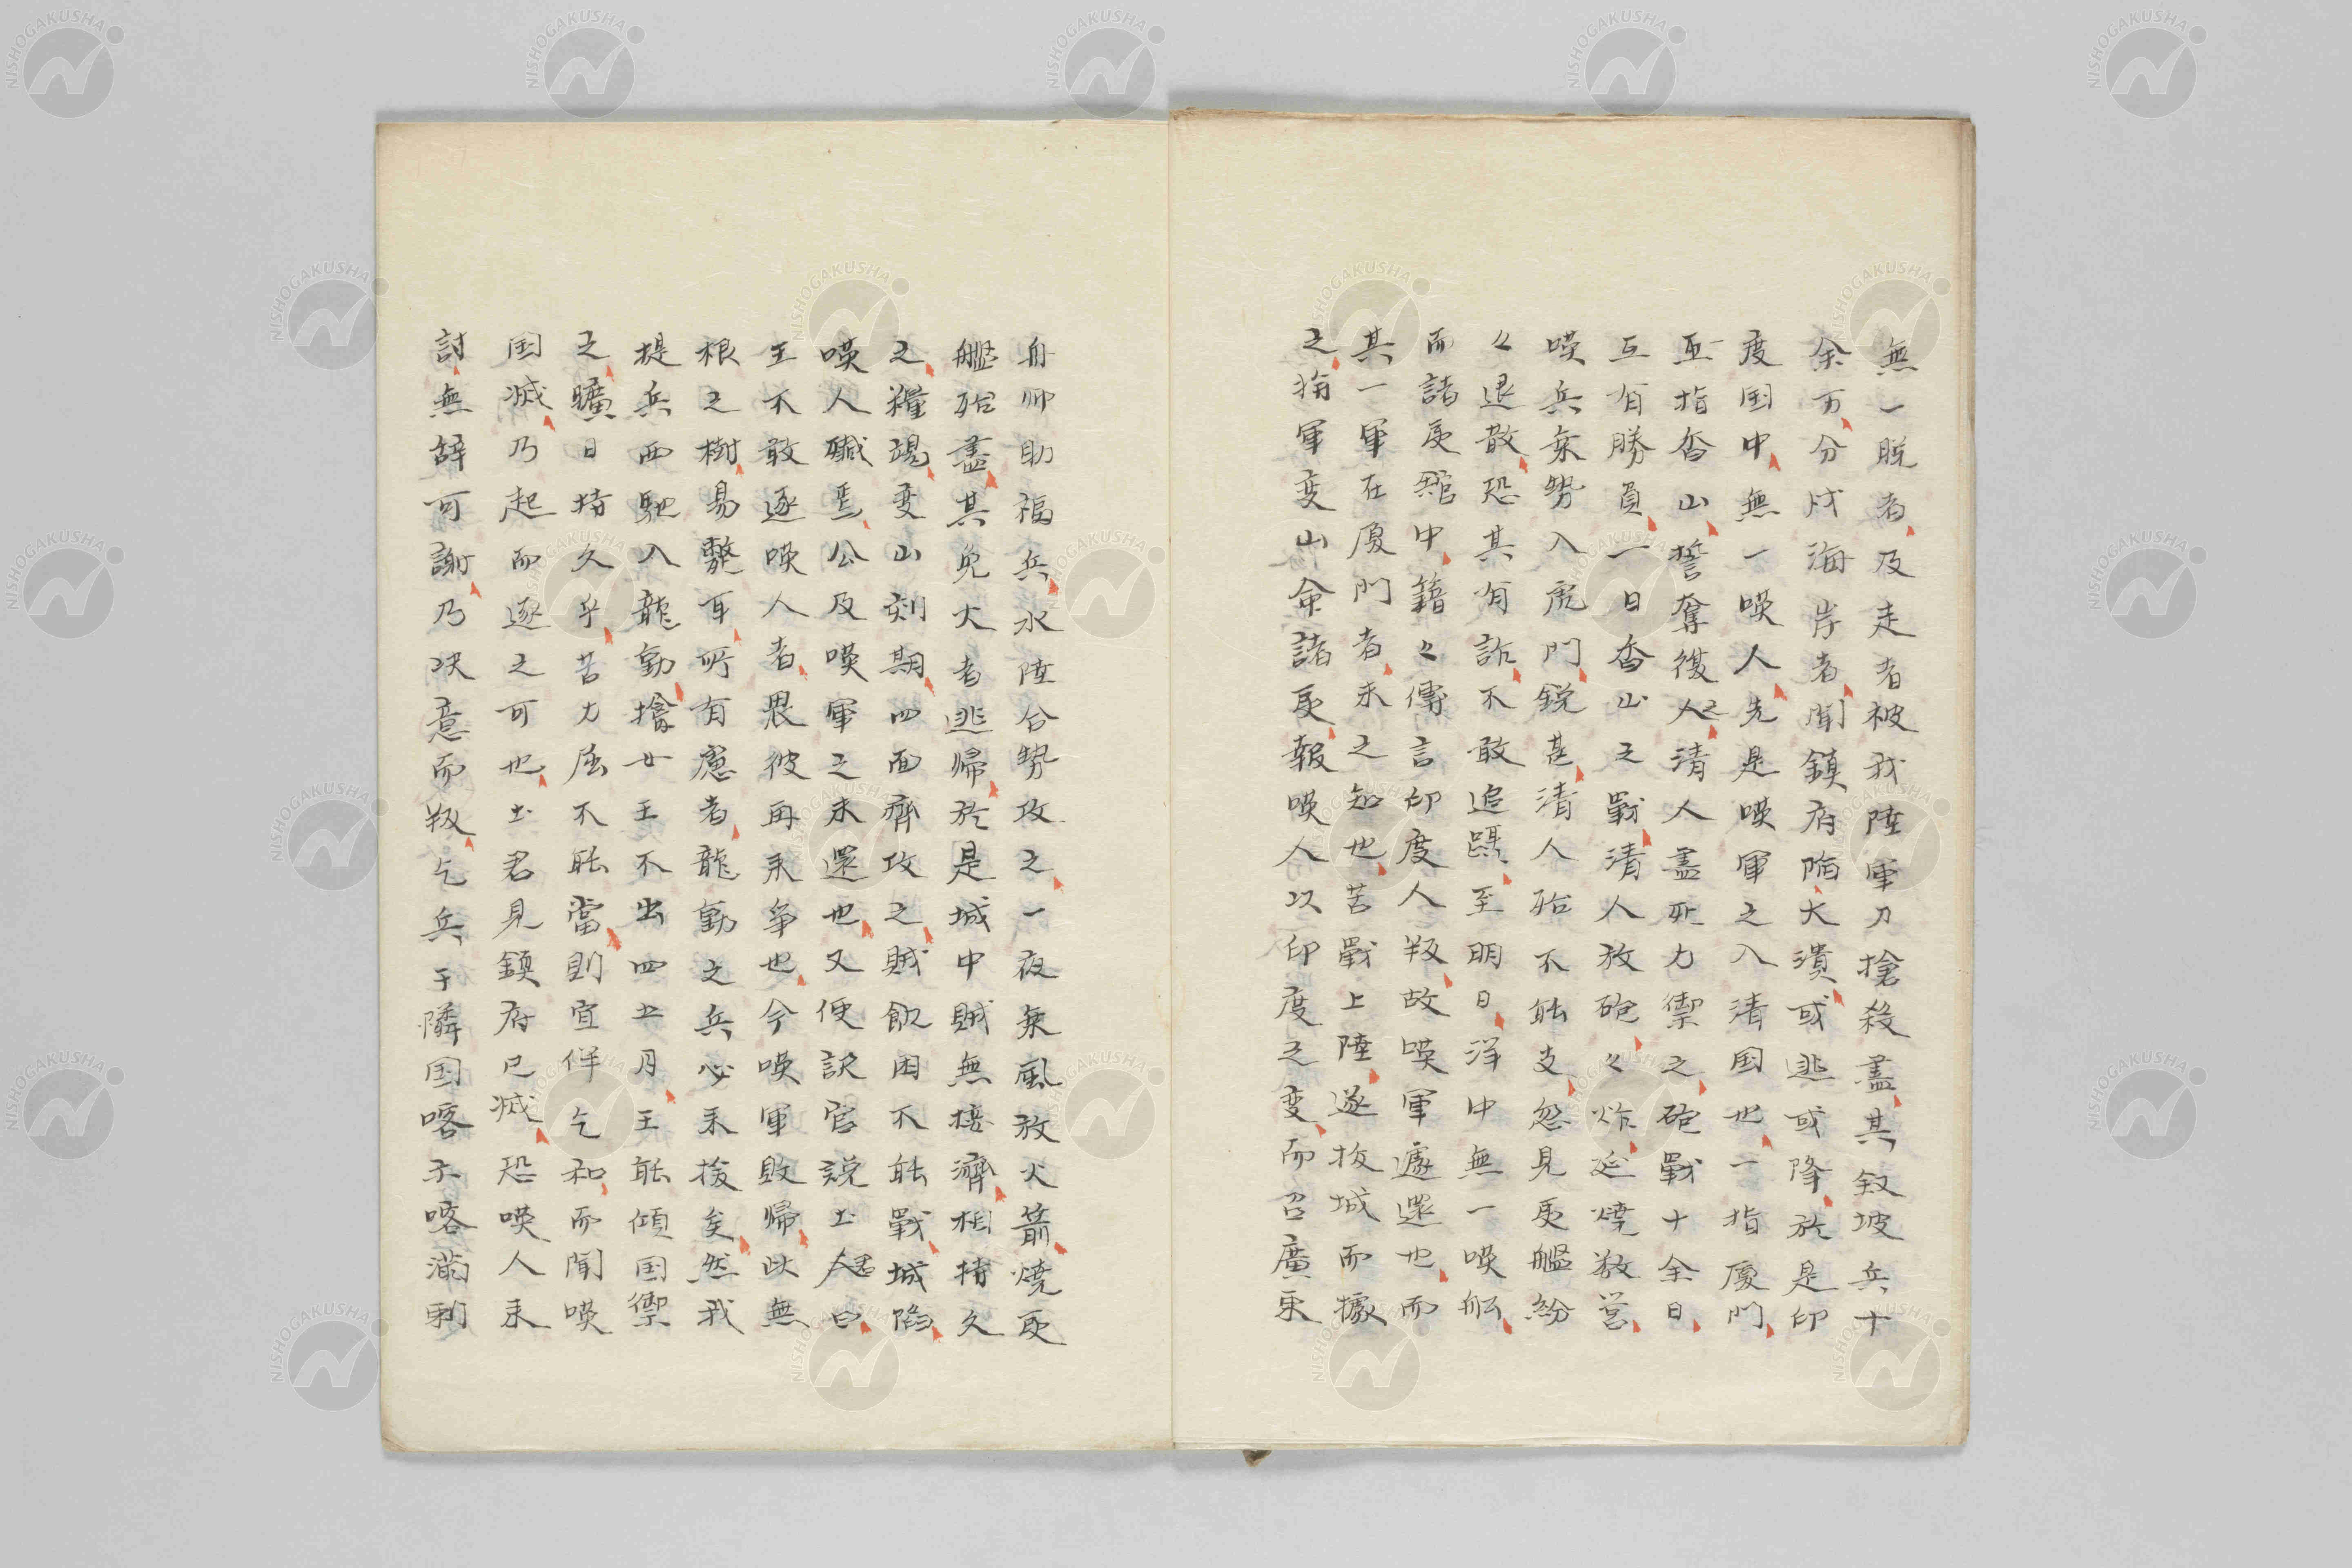 無一脱者及走者被我陸軍刀搶殺盡其釵坡兵十
余万分戍海岸者聞鎮府陥大潰或逃或降於是印
度国中無一嘆人先是嘆軍之入清国也一指廈門
一指香山誓奪復之清人盡死力禦之砲戰十余日
互有勝負一日香山之戰清人放砲々炸延焼数営
嘆兵乗勢入虎門鋭甚清人殆不能支忽見夷艦紛
々退散恐其有詐不敢追躡至明日洋中無一嘆舩
而諸夷舘中籍々傳言印度人叛故嘆軍遽還也而
其一軍在廈門者未之知也苦戰上陸遂抜城而據
之狥軍変山命諸夷報嘆人以印度之変而召廣東
舟師助福兵水陸合勢攻之一夜乗風放火箭焼夷
艦殆盡其免火者逃帰於是城中賊無接濟相持久
之糧竭変山刻期四面齊攻之賊飢困不能戰城陥
嘆人殲焉公及嘆軍之未還也又便訳官説土君曰
王不敢逐嘆人者畏彼再来争也今嘆軍敗帰此無
根之樹易斃耳所有慮者龍動之兵必来援矣然我
提兵西馳入龍動擒女王不出四五月王能傾国禦
之曠日持久乎苦力屈不能當則宜佯乞和而聞嘆
国滅乃起而逐之可也土君見鎮府已滅恐嘆人来
討無辞可謝乃决意而叛乞兵于隣国喀尓喀滿剌